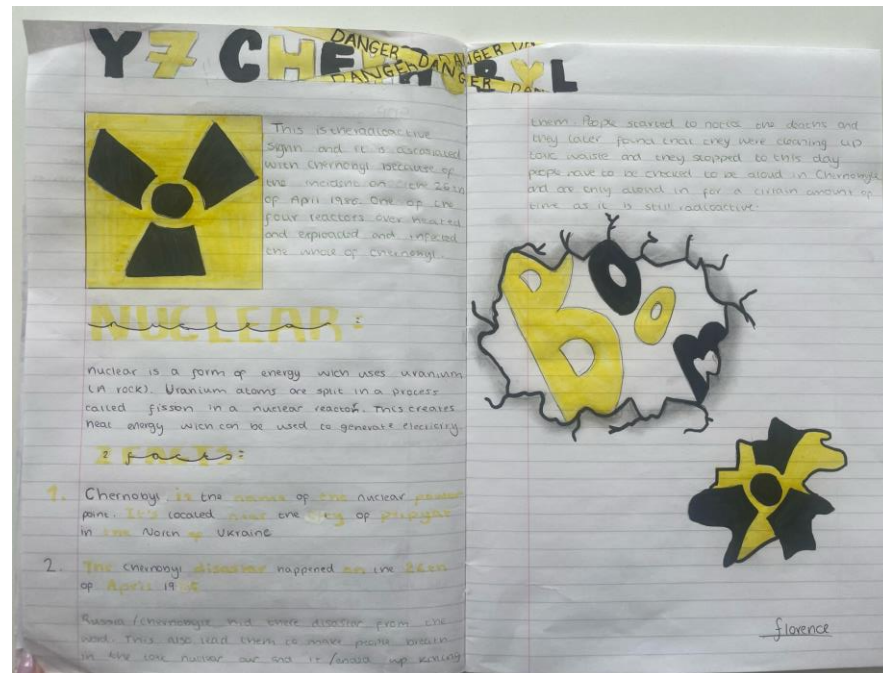 Y7 CHERNOBYL
DANGER DANGER
DANGER DANGER
This is the radioactive
sighn and it is ascosiated
with Chernonyl because of
the incident on the 26th
of April 1986. One of the
four reactors over heated
and exploaded and infected
the whole of Chernonyl.
NUCLEAR:
nuclear
nuclear is a form of energy wich uses uranium
(A rock). Uranium atoms are split in a process
called fisson in a nuclear reactor. This creates
heat energy wich can be used to generate electricity.
2 facts:
1. Chernobyl is the name of the nuclear power
point. It's located near the city of pripyat
in the North of Ukraine
2. The Chernobyl disaster happened on the 26th
of April 19
Russia / chernobyle hid there disaster from the
word. This also lead them to make people breath
in the nuclear air and it up killing
them. People started to notice the deaths and
they later found that they were cleaning up
toxic waiste and they stopped to this day
people have to be checked to be aloud in Chernobyle
and are only aloud in for a certain amount of
time as it is still radioactive.
Boom
florence